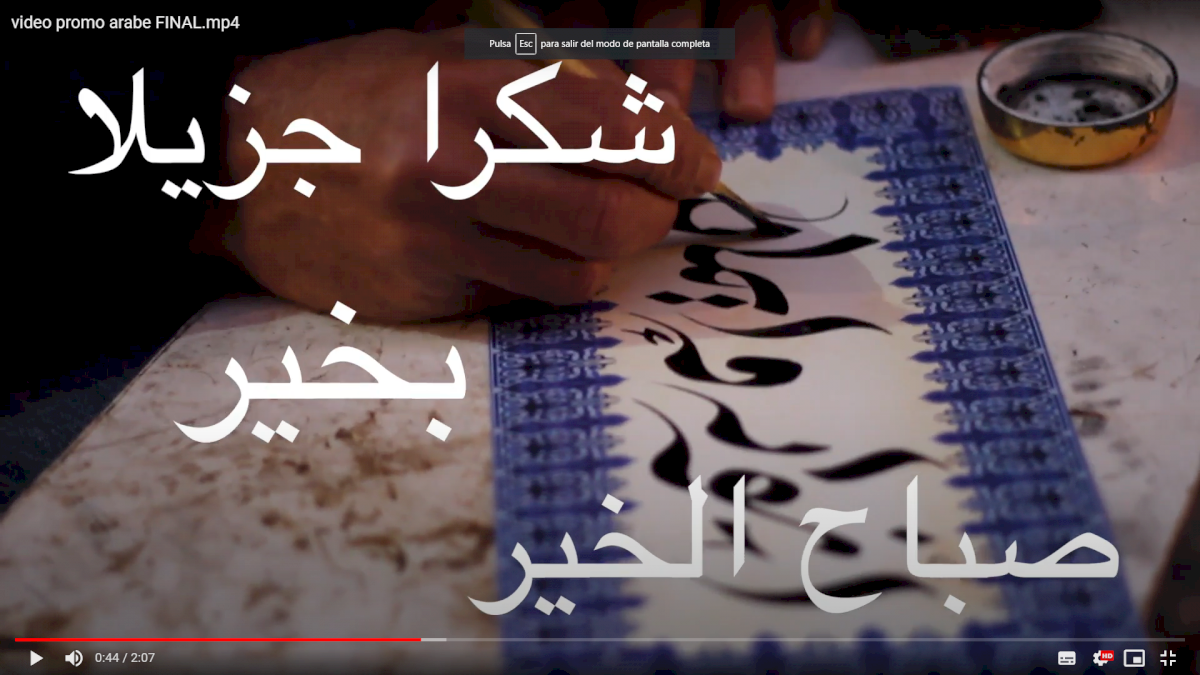 video promo arabe FINAL.mp4
Pulsa Esc para salir del modo de pantalla completa
شكرا جزيلا
بخير
صباح الخير
0:44 / 2:07
HD